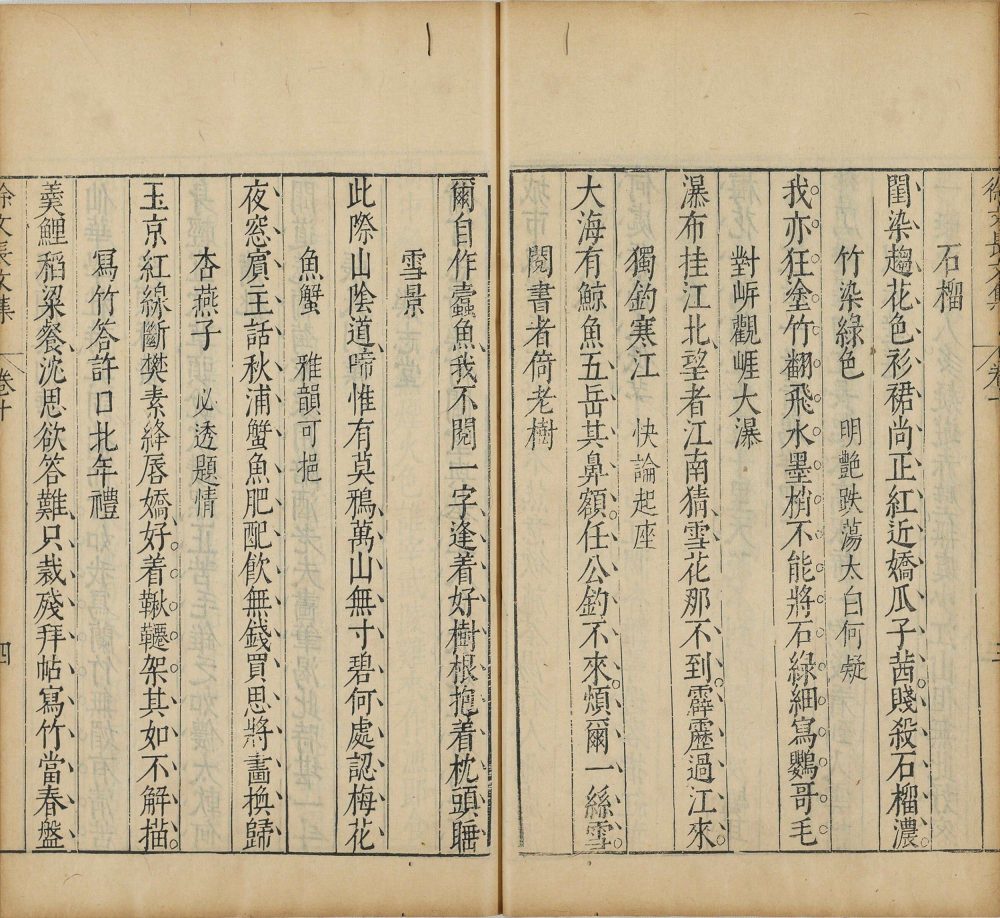 石榴
閨染趨花色衫裙尚正紅近嬌瓜子茜賤殺石榴濃
竹染綠色　明艷跌蕩太白何疑
我亦狂塗竹翻飛水墨梢不能將石綠細寫鸚哥毛
對㟁觀崕大瀑
瀑布挂江北望者江南猜雪花那不到霹靂過江來
獨釣寒江　快論起座
大海有鯨魚五岳其鼻額任公釣不來煩爾一絲雪
閱書者倚老樹
爾自作蠹魚我不閱一字逢着好樹根抱着枕頭睡
雪景
此際山陰道啼惟有莫鴉萬山無寸碧何處認梅花
魚蟹　雅韻可挹
夜窓賔主話秋浦蟹魚肥配飲無錢買思將畫換歸
杏燕子　必透題情
玉京紅線斷樊素絳唇嬌好着鞦韆架其如不解描
寫竹答許口北年禮
羹鯉稻粱餐沈思欲答難只裁殘拜帖寫竹當春盤
徐文長文集　卷十　四